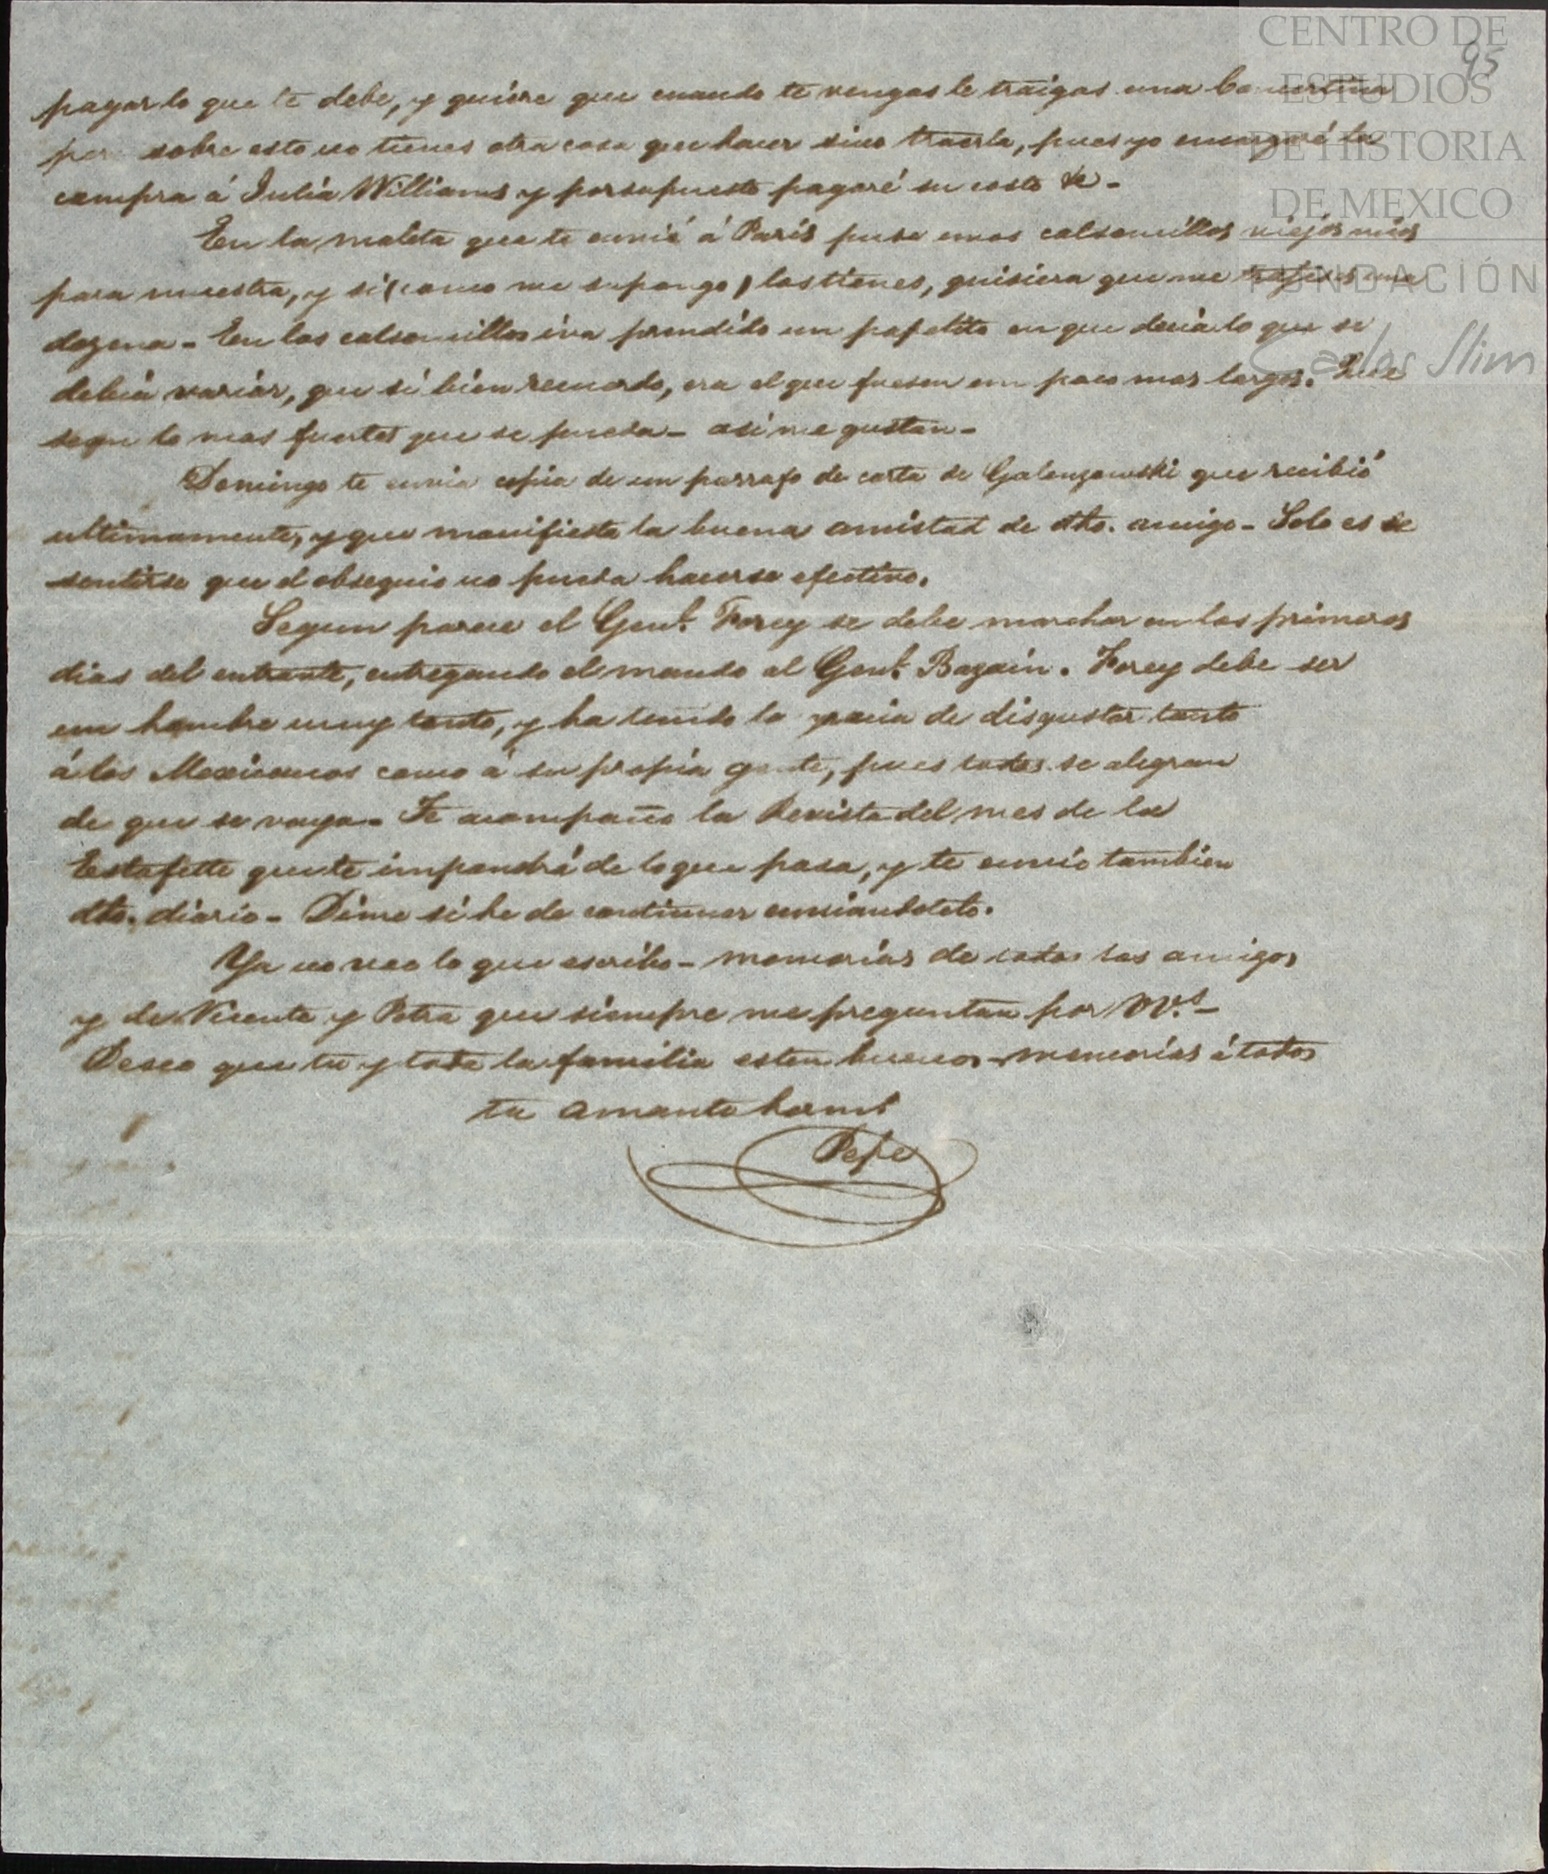 95
CENTRO DE
ESTUDIOS
DE HISTORIA
DE MEXICO
FUNDACIÓN
Carlos Slim
pagar lo que te debe, y quiere que cuando te vengas le traigas una
sobre esto no tienes otra cosa que hacer sino traerla, pues yo encargaré la
compra á Julia Williams y por supuesto pagaré su costo &-
En la maleta que te envié á Paris puse unos calsoncillos viejos mios
para muestra, y si (como me supongo) los tienes, quisiera que me trajeras una
dozena - En los calsoncillos iva prendido un papelito en que decia lo que se
debia variar, que si bien recuerdo, era el que fuesen un poco mas largos.
lo mas fuertes que se pueda - asi me gustan -
Domingo te envia copia de un parrafo de carta de Galenzowski que recibió
ultimamente, y que manifiesta la buena amistad de dho. amigo - Solo es de
sentirse que el obsequio no pueda hacerse efectivo.
Segun parece el Genl. Forey se debe marchar en los primeros
dias del entrante, entregando el mando al Genl. Bazain. Forey debe ser
un hombre muy tonto, y ha tenido la gracia de disgustar tanto
á los Mexicanos como á su propia gente, pues todos se alegran
de que se vaya - Te acompaño la Revista del mes de la
Estafette que te impondrá de lo que pasa, y te envio tambien
dho. diario - Dime si he de continuar enviandotelo.
Ya no veo lo que escribo - memorias de todos los amigos
y de Vicente y Petra que siempre me preguntan por VVs. -
Deseo que tu y toda la familia esten buenos - memorias á todos
tu amante hermo.
Pepe